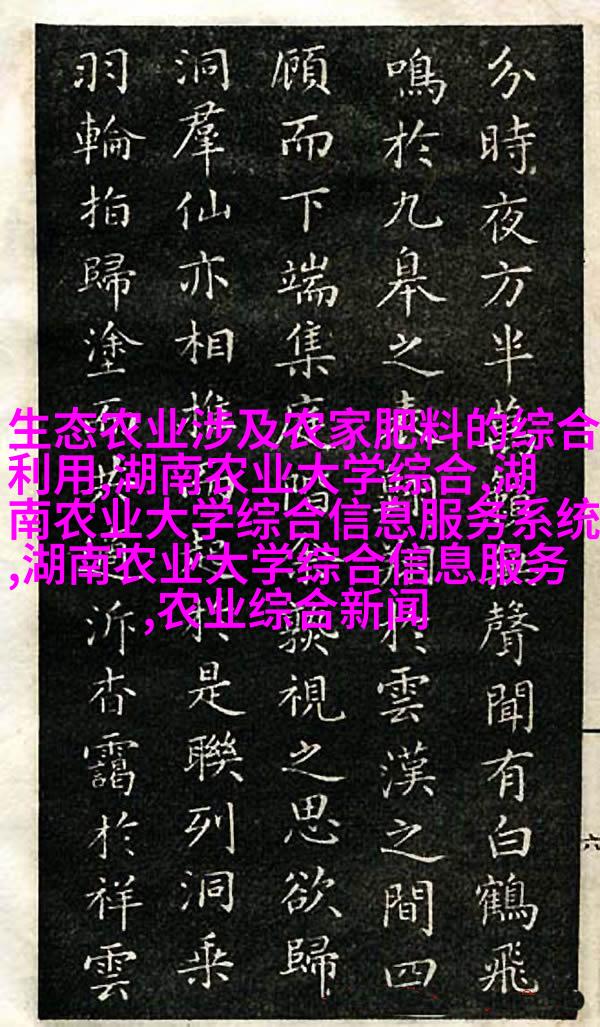 生态农业涉及农家肥料的综合
利用,湖南农业大学综合,湖
南农业大学综合信息服务系统
,湖南农业大学综合信息服务
,农业综合新闻
分時夜方半聲聞有白鶴飛
鳴於九皋之於雲漢之間四
顧而下端集視之思欲歸
洞羣仙亦相於是聯列洞乘
羽輪指歸塗泝杳靄於祥雲
六